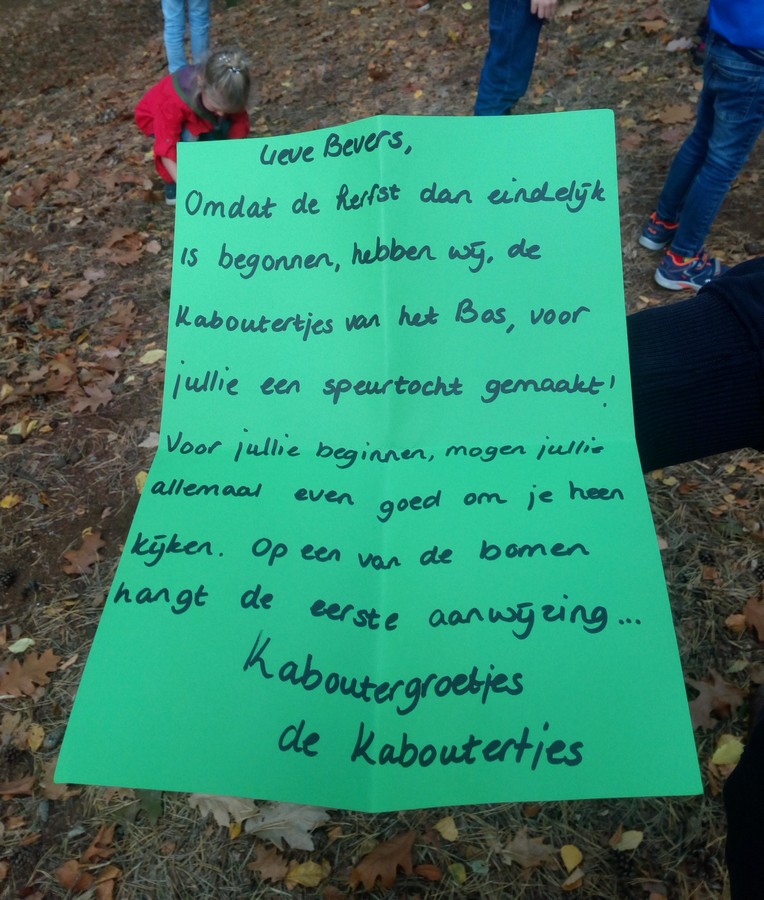 Lieve Bevers,
Omdat de herfst dan eindelijk
is begonnen, hebben wij, de
Kaboutertjes van het Bos, voor
jullie een speurtocht gemaakt!
Voor jullie beginnen, mogen jullie
allemaal even goed om je heen
kijken. Op een van de bomen
hangt de eerste aanwijzing...
Kaboutergroetjes
de Kaboutertjes